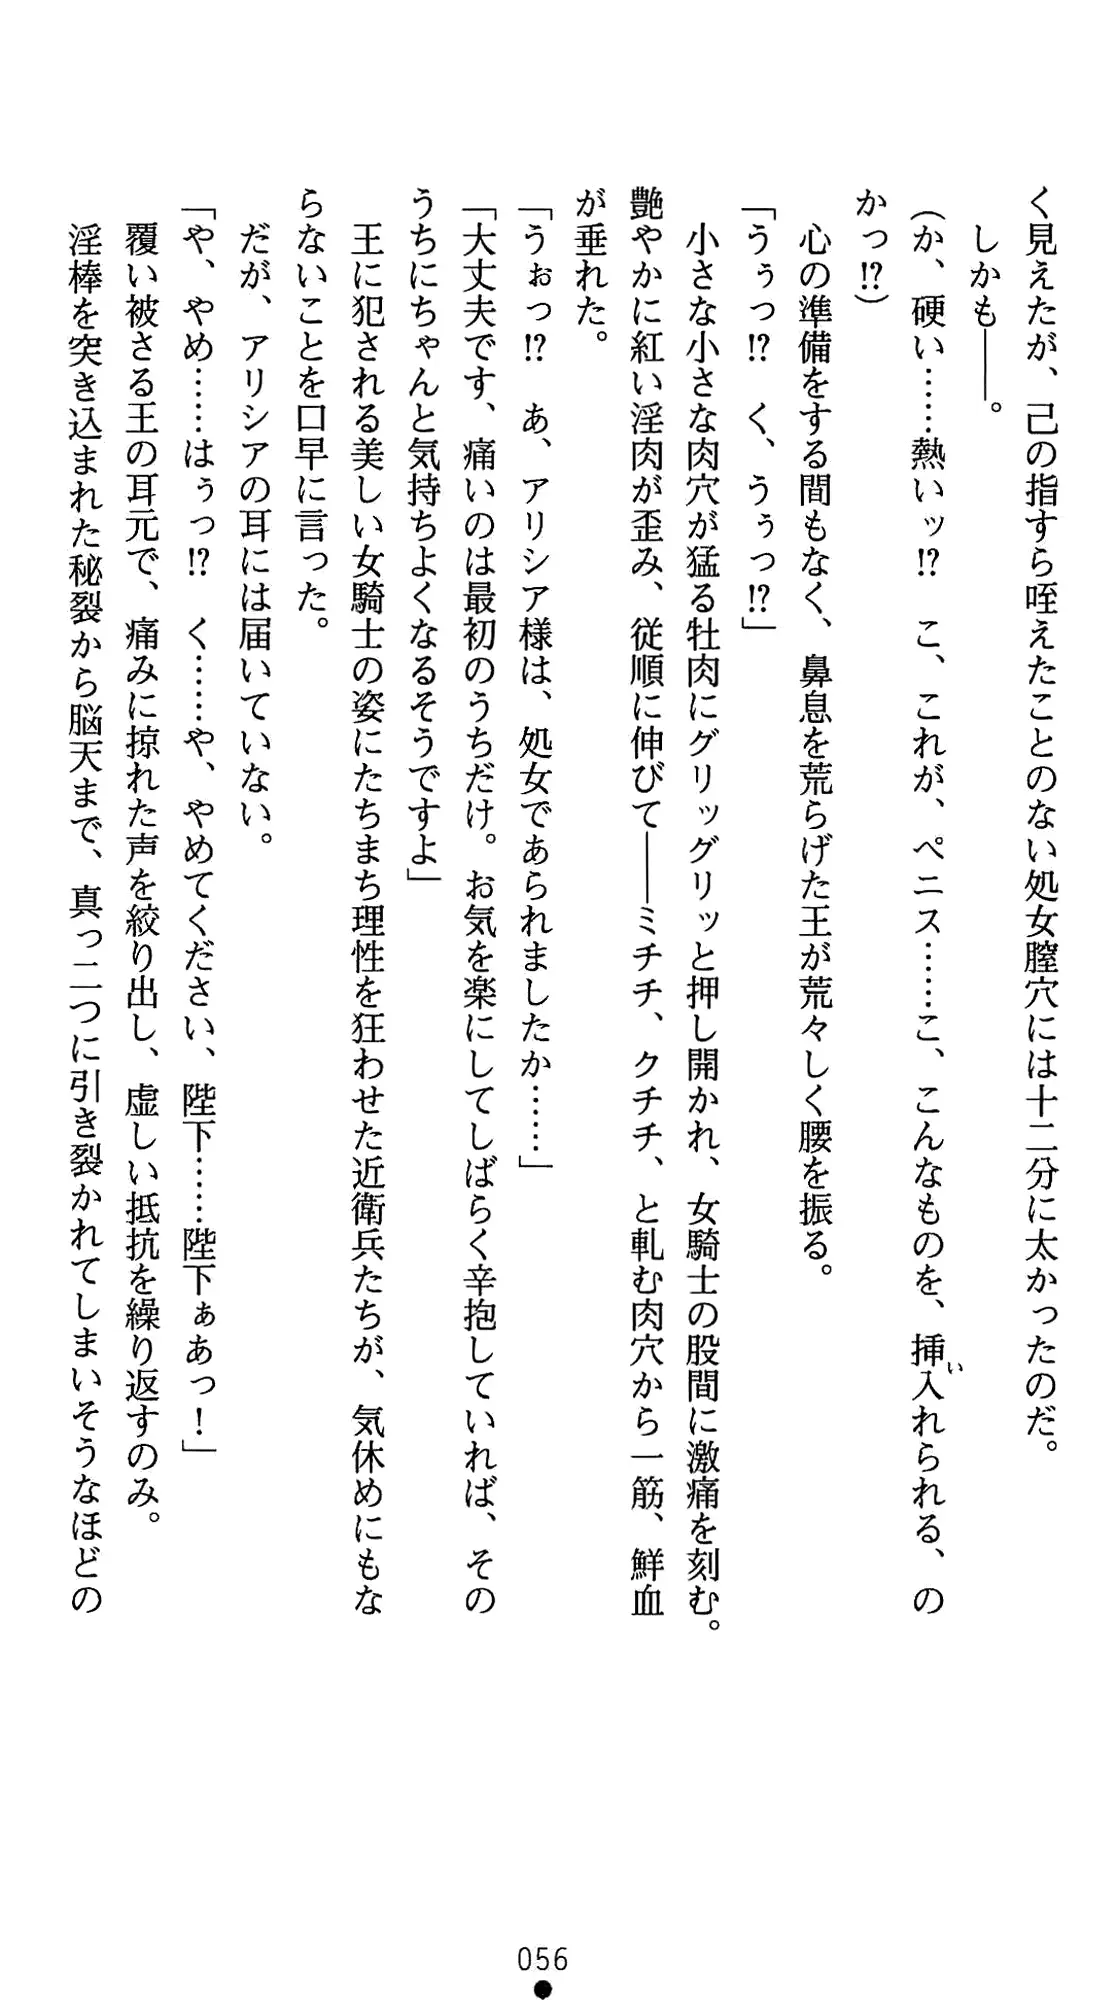 く見えたが、己の指すら咥えたことのない処女膣穴には十二分に太かったのだ。
しかも――。
(か、硬い……熱いッ!? こ、これが、ペニス……こ、こんなものを、挿入れられる、の
い
かっ!?)
心の準備をする間もなく、鼻息を荒らげた王が荒々しく腰を振る。
「うぅっ!? く、うぅっ!?」
小さな小さな肉穴が猛る牡肉にグリッグリッと押し開かれ、女騎士の股間に激痛を刻む。
艶やかに紅い淫肉が歪み、従順に伸びて――ミチチ、クチチ、と軋む肉穴から一筋、鮮血
が垂れた。
「うぉっ!? あ、アリシア様は、処女であられましたか……」
「大丈夫です、痛いのは最初のうちだけ。お気を楽にしてしばらく辛抱していれば、その
うちにちゃんと気持ちよくなるそうですよ」
王に犯される美しい女騎士の姿にたちまち理性を狂わせた近衛兵たちが、気休めにもな
らないことを口早に言った。
だが、アリシアの耳には届いていない。
「や、やめ……はぅっ!? く……や、やめてください、陛下……陛下ぁあっ!」
覆い被さる王の耳元で、痛みに掠れた声を絞り出し、虚しい抵抗を繰り返すのみ。
淫棒を突き込まれた秘裂から脳天まで、真っ二つに引き裂かれてしまいそうなほどの
056